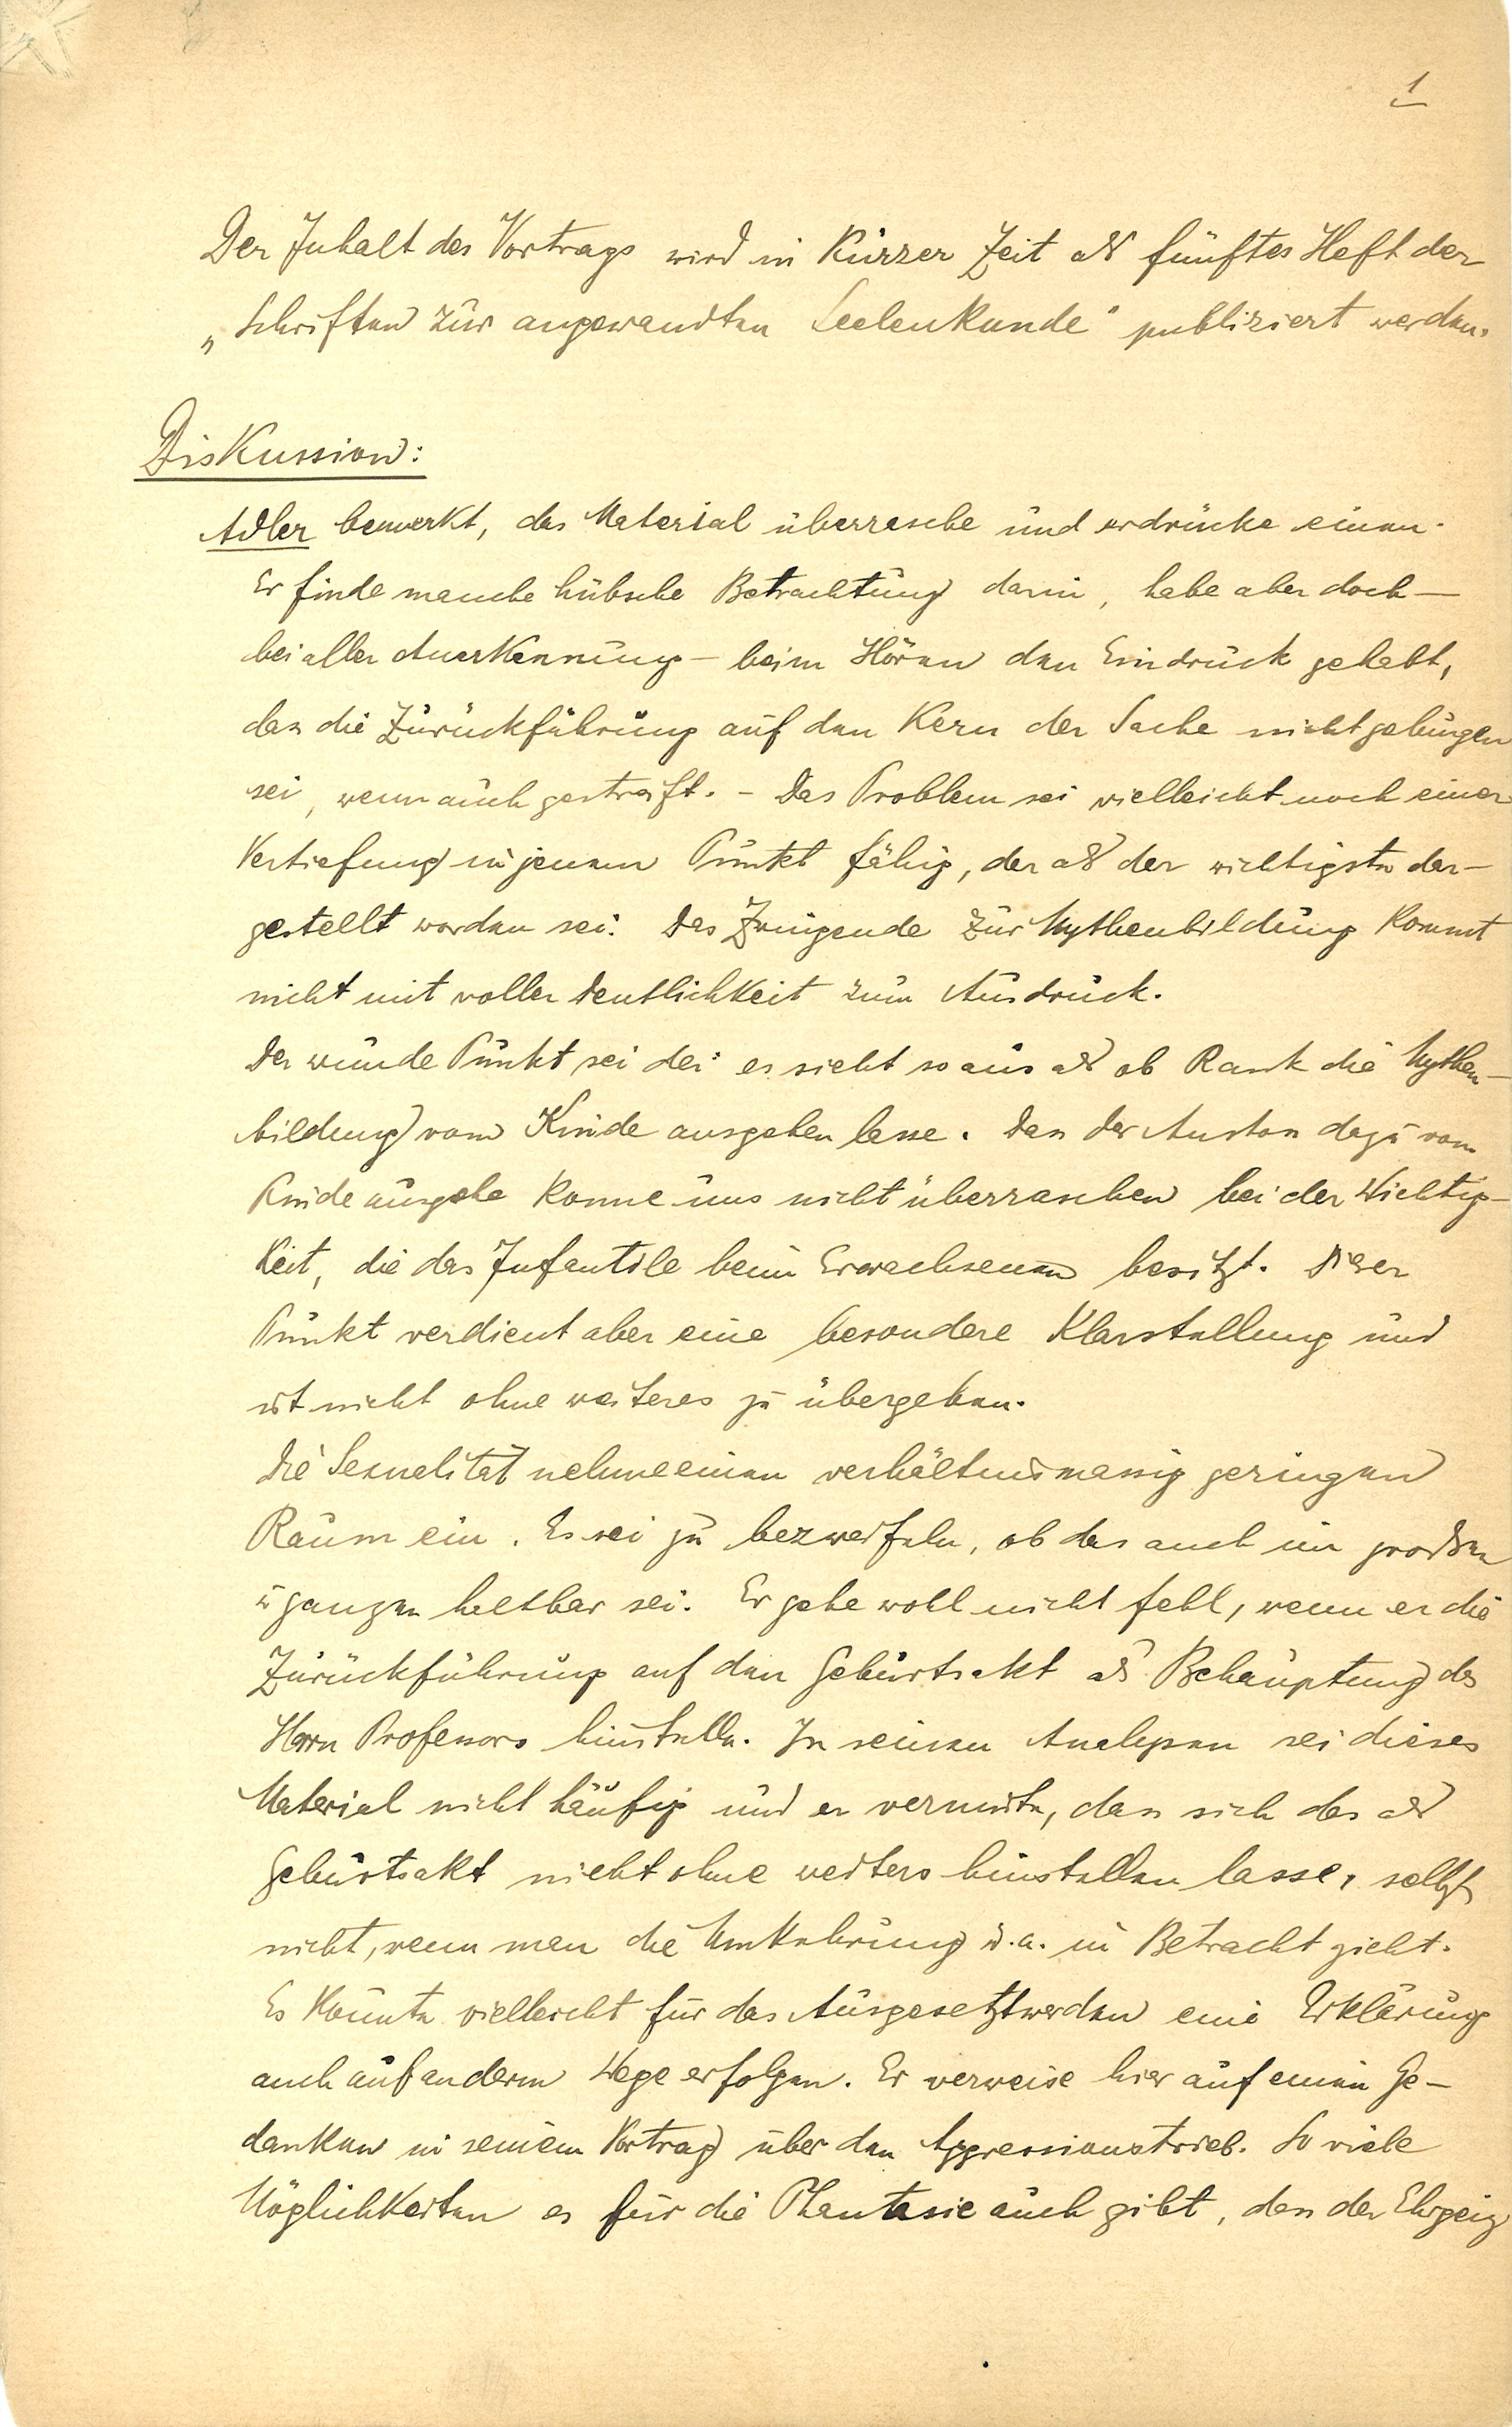 1
Der Inhalt des Vortrags wird in kurzer Zeit als fünftes Heft der
„Schriften zur angewandten Seelenkunde" publiziert werden.
Diskussion:
Adler bemerkt, das Material überrasche und erdrücke einen.
Er finde manche hübsche Betrachtung darin, habe aber doch —
bei aller Anerkennung — beim Hören den Eindruck gehabt,
dass die Zurückführung auf den Kern der Sache nicht gelungen
sei, wenn auch gestreift. – Das Problem sei vielleicht noch einer
Vertiefung in jenem Punkt fähig, der als der wichtigste dar-
gestellt worden sei: Das Zwingende zur Mythenbildung kommt
nicht mit voller Deutlichkeit zum Ausdruck.
Der wunde Punkt sei der: es sieht so aus als ob Rank die Mythen-
bildung vom Kinde ausgehen lasse. Dass der Anstoss dazu vom
Kinde ausgehe könne uns nicht überraschen bei der Wichtig-
keit, die das Infantile beim Erwachsenen besitzt. Dieser
Punkt verdient aber eine besondere Klarstellung und
ist nicht ohne weiteres zu übergehen.
Die Sexualität nehme einen verhältnismässig geringen
Raum ein. Es sei zu bezweifeln, ob das auch im grossen
u ganzen haltbar sei. Er gehe wohl nicht fehl, wenn er die
Zurückführung auf den Geburtsakt als Behauptung des
Herrn Professors hinstelle. In seinen Analysen sei dieses
Material nicht häufig und er vermute, dass sich das als
Geburtsakt nicht ohne weiters hinstellen lasse, selbst
nicht, wenn man die Umkehrung u. a. in Betracht zieht.
Es könnte vielleicht für das Ausgesetztwerden eine Erklärung
auch auf anderm Wege erfolgen. Er verweise hier auf einen Ge-
danken in seinem Vortrag über den Aggressionstrieb. So viele
Möglichkeiten es für die Phantasie auch gibt, den der Ehrgeiz